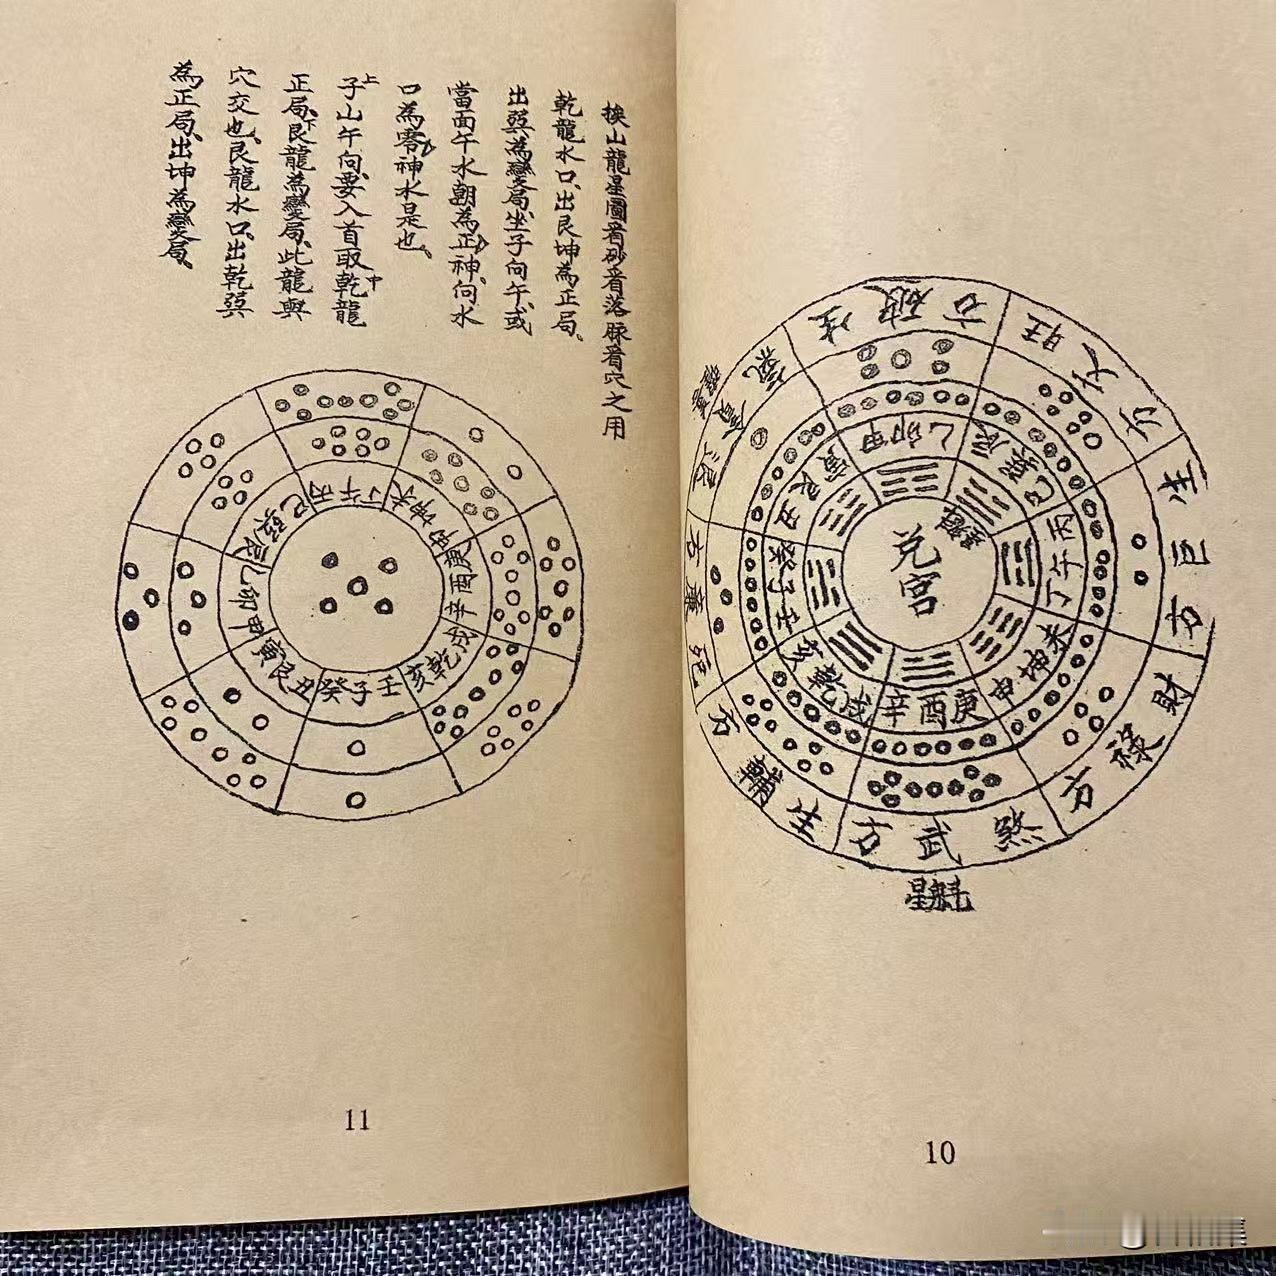 兌宮
甲卯乙
辰巽巳
丙午丁
未坤申
庚酉辛
戌乾亥
壬子癸
丑艮寅
方破生
旺文方
生巨方
財祿方
煞武方
生輔方
死廉方
魁星
10
挨山龍星圖看砂看落脉看穴之用
乾龍水口、出艮坤為正局、
出巽為變局、坐子向午、或
當面午水朝為正神、向水
口為零神水是也、
上
子山午向、要入首取乾龍
中
正局、艮龍為變局、此龍與
下
穴交也、艮龍水口、出乾巽
為正局、出坤為變局、
丙午丁
未坤申
庚酉辛
戌乾亥
壬子癸
丑艮寅
甲卯乙
巽巳
11